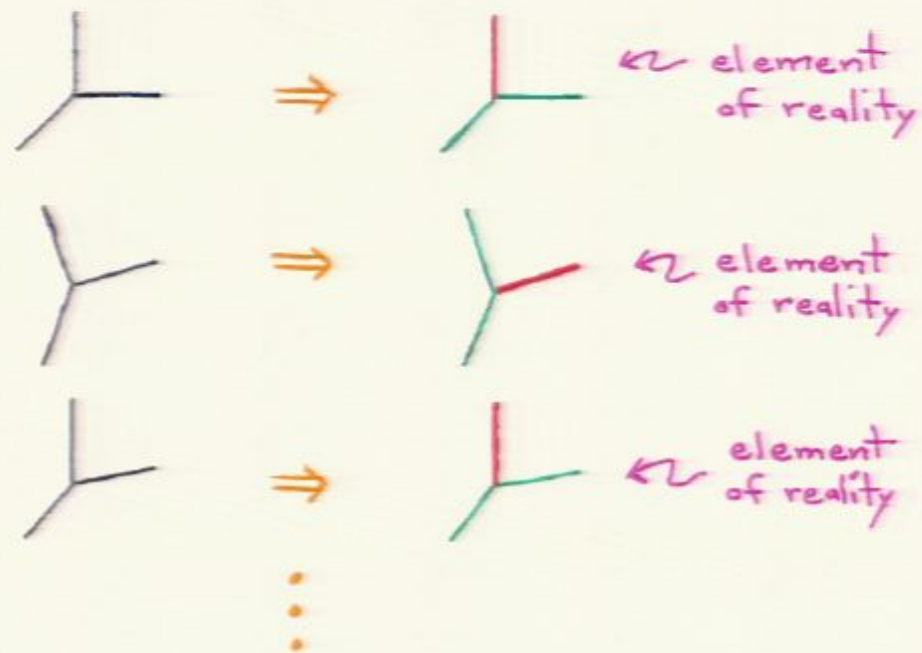 element
of reality
element
of reality
element
of reality